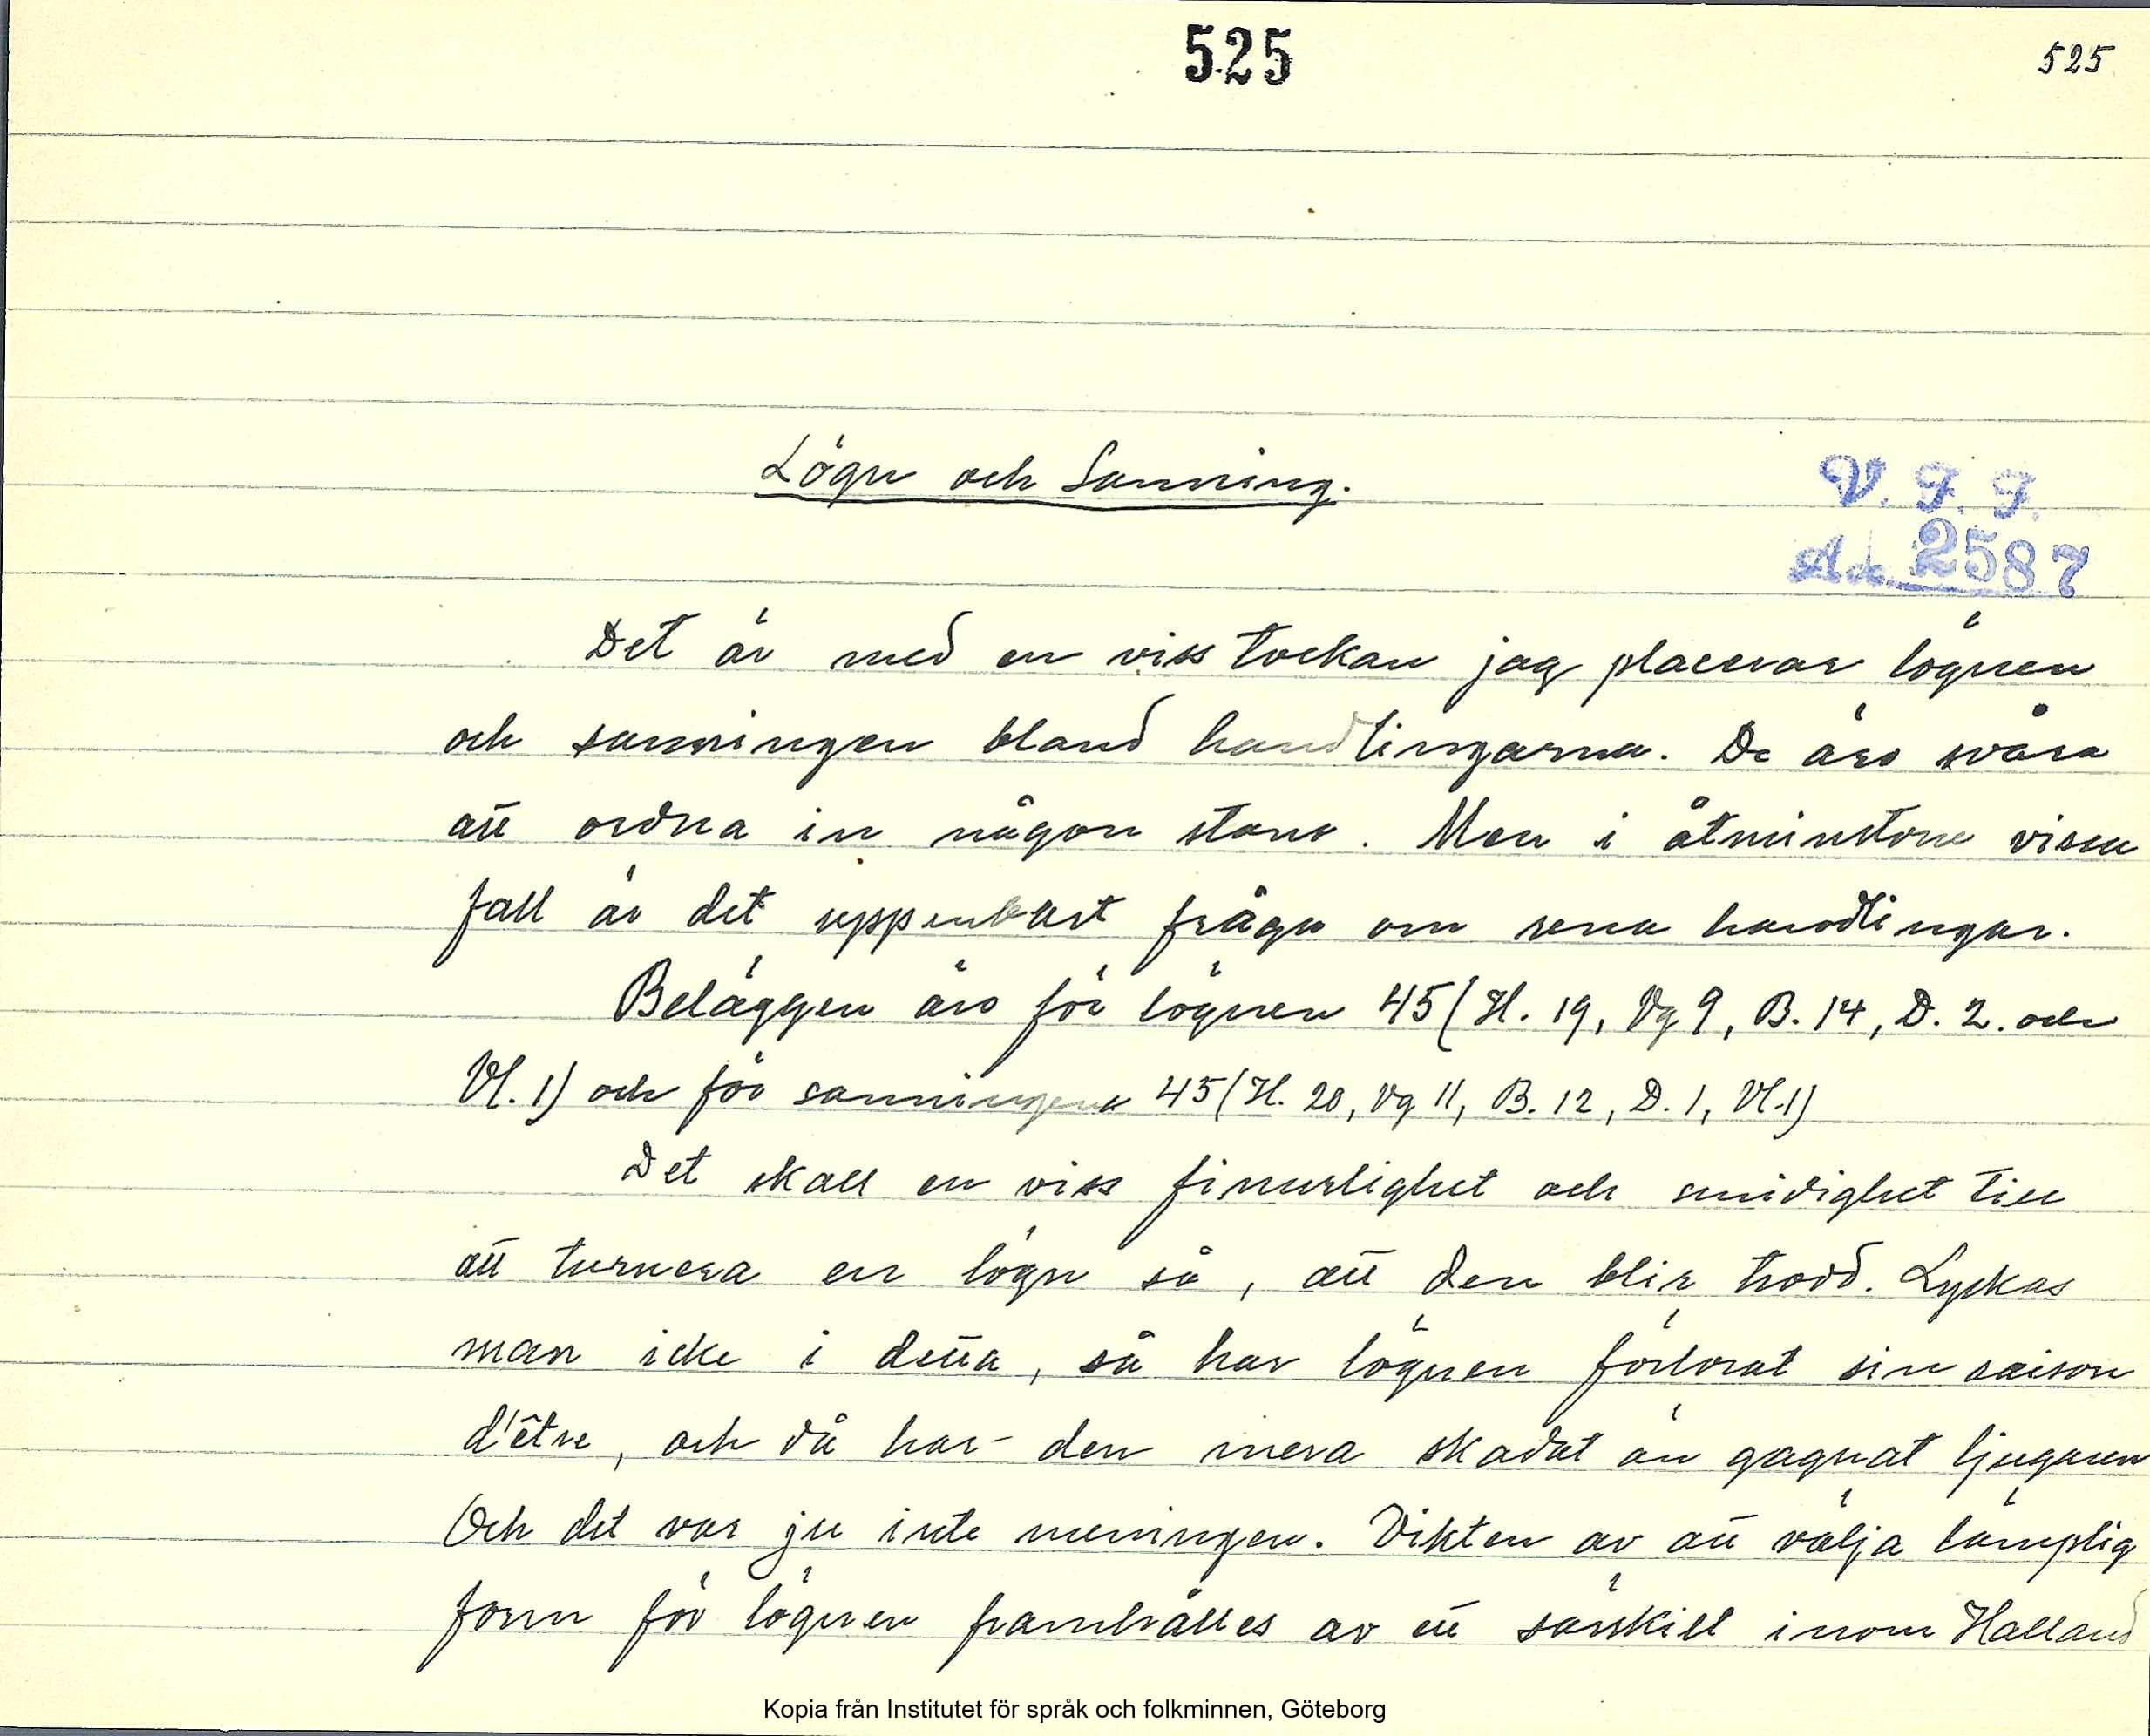 525
525
Lögn och Sanning.
V. F. F.
Ac. 2587
Det är med en viss tvekan jag placerar lögnen
och sanningen bland handlingarna. De äro svåra
att ordna in någon stans. Men i åtminstone vissa
fall är det uppenbart fråga om rena handlingar.
Beläggen äro för lögnen 45 (H. 19, Vg 9, B. 14, D. 2. och
Vl. 1) och för sanningen 45 (H. 20, Vg 11, B. 12, D. 1, Vl. 1)
Det skall en viss finurlighet och smidighet till
att turnera en lögn så, att den blir trodd. Lyckas
man icke i detta, så har lögnen förlorat sin raison
d'être, och då har den mera skadat än gagnat ljugaren
Och det var ju inte meningen. Vikten av att välja lämplig
form för lögnen framhålles av ett särskilt inom Halland
Kopia från Institutet för språk och folkminnen, Göteborg